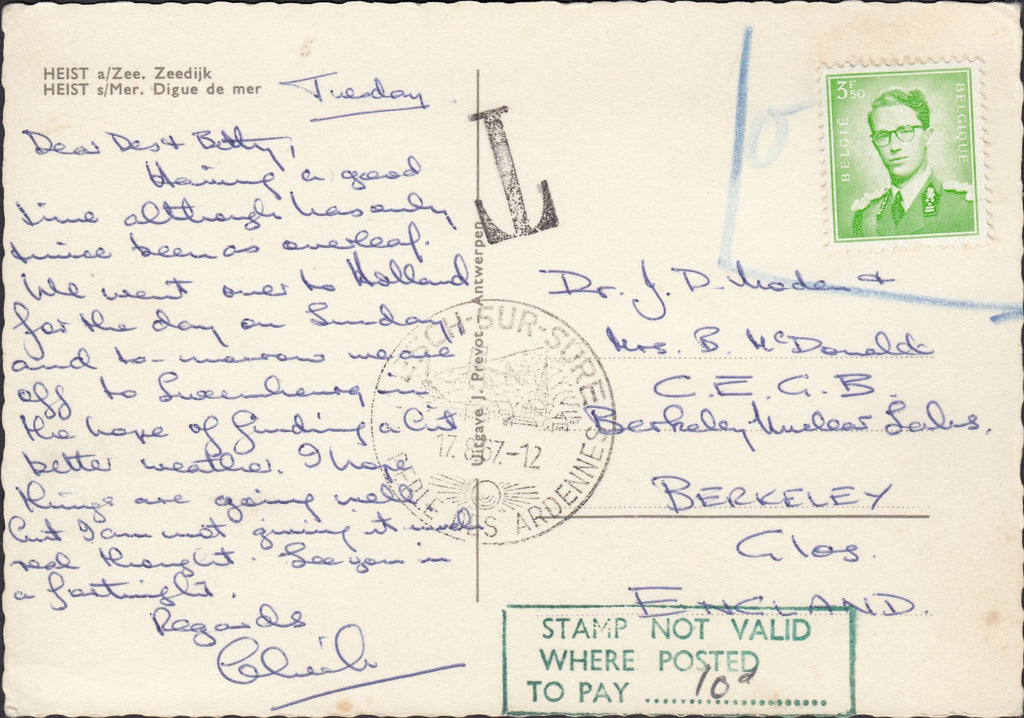 HEIST a/Zee. Zeedijk
HEIST s/Mer. Digue de mer
Tuesday
Dear Des & Betty,
Having a good
time although has only
twice been as overleaf.
We went over to Holland
for the day on Sunday
and to-morrow we are
off to Luxembourg in
the hope of finding a bit
better weather. I hope
things are going well
but I am not giving it much
real thought. See you in
a fortnight.
Regards
T
Uitgave J. Prevot - Antwerpen
ESCH-SUR-SURE
17.8.67.-12
PERLE DES ARDENNES
10
3F50
BELGIË
BELGIQUE
Dr. J. D. &
Mrs. B. McDonald
C.E.G.B.
Berkeley Nuclear Labs.
BERKELEY
Glos.
ENGLAND.
STAMP NOT VALID
WHERE POSTED
TO PAY 10d